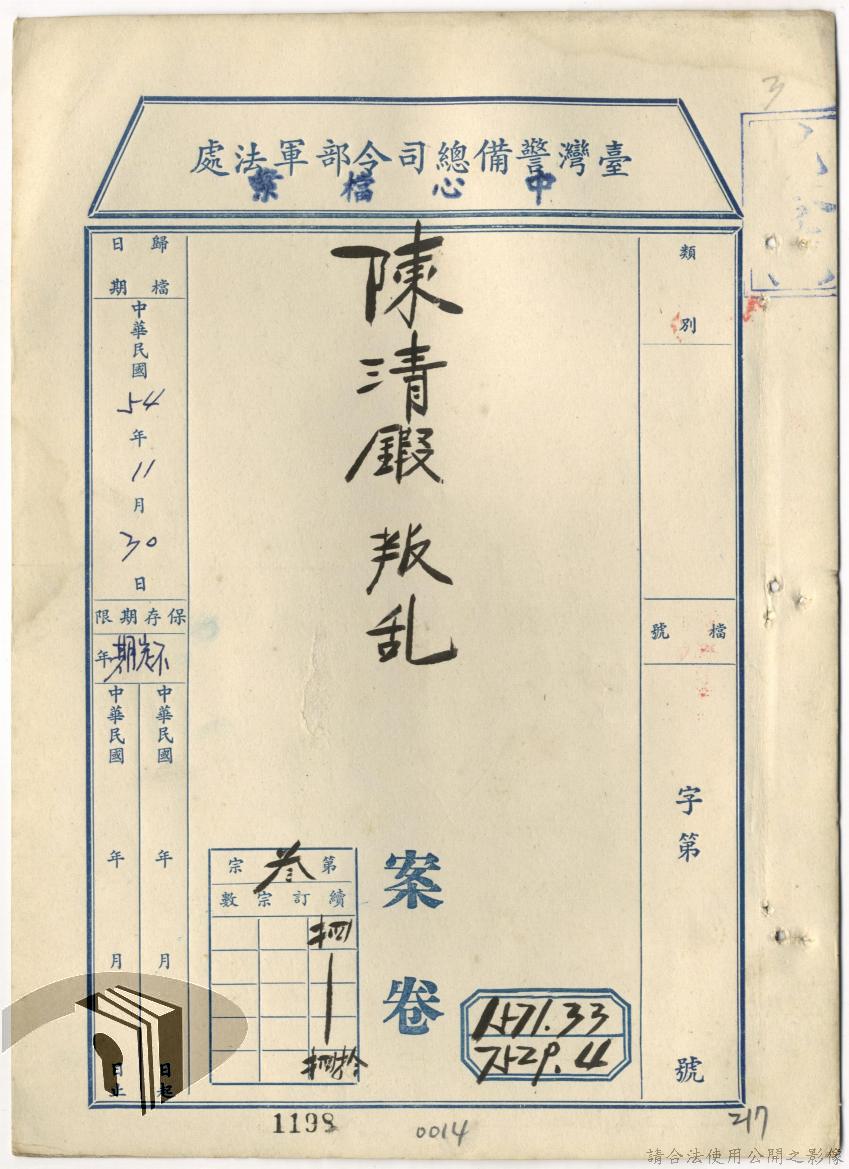 臺灣警備總司令部軍法處
中心檔案
類別
檔號
字第
號
陳清 叛乱
案卷
1571.33
7529.4
第叁宗
續訂宗數
歸檔日期
中華民國54年11月30日
保存期限
年
中華民國 年 月 日起
中華民國 年 月 日止
3
1198
0014
217
請合法使用公開之影像